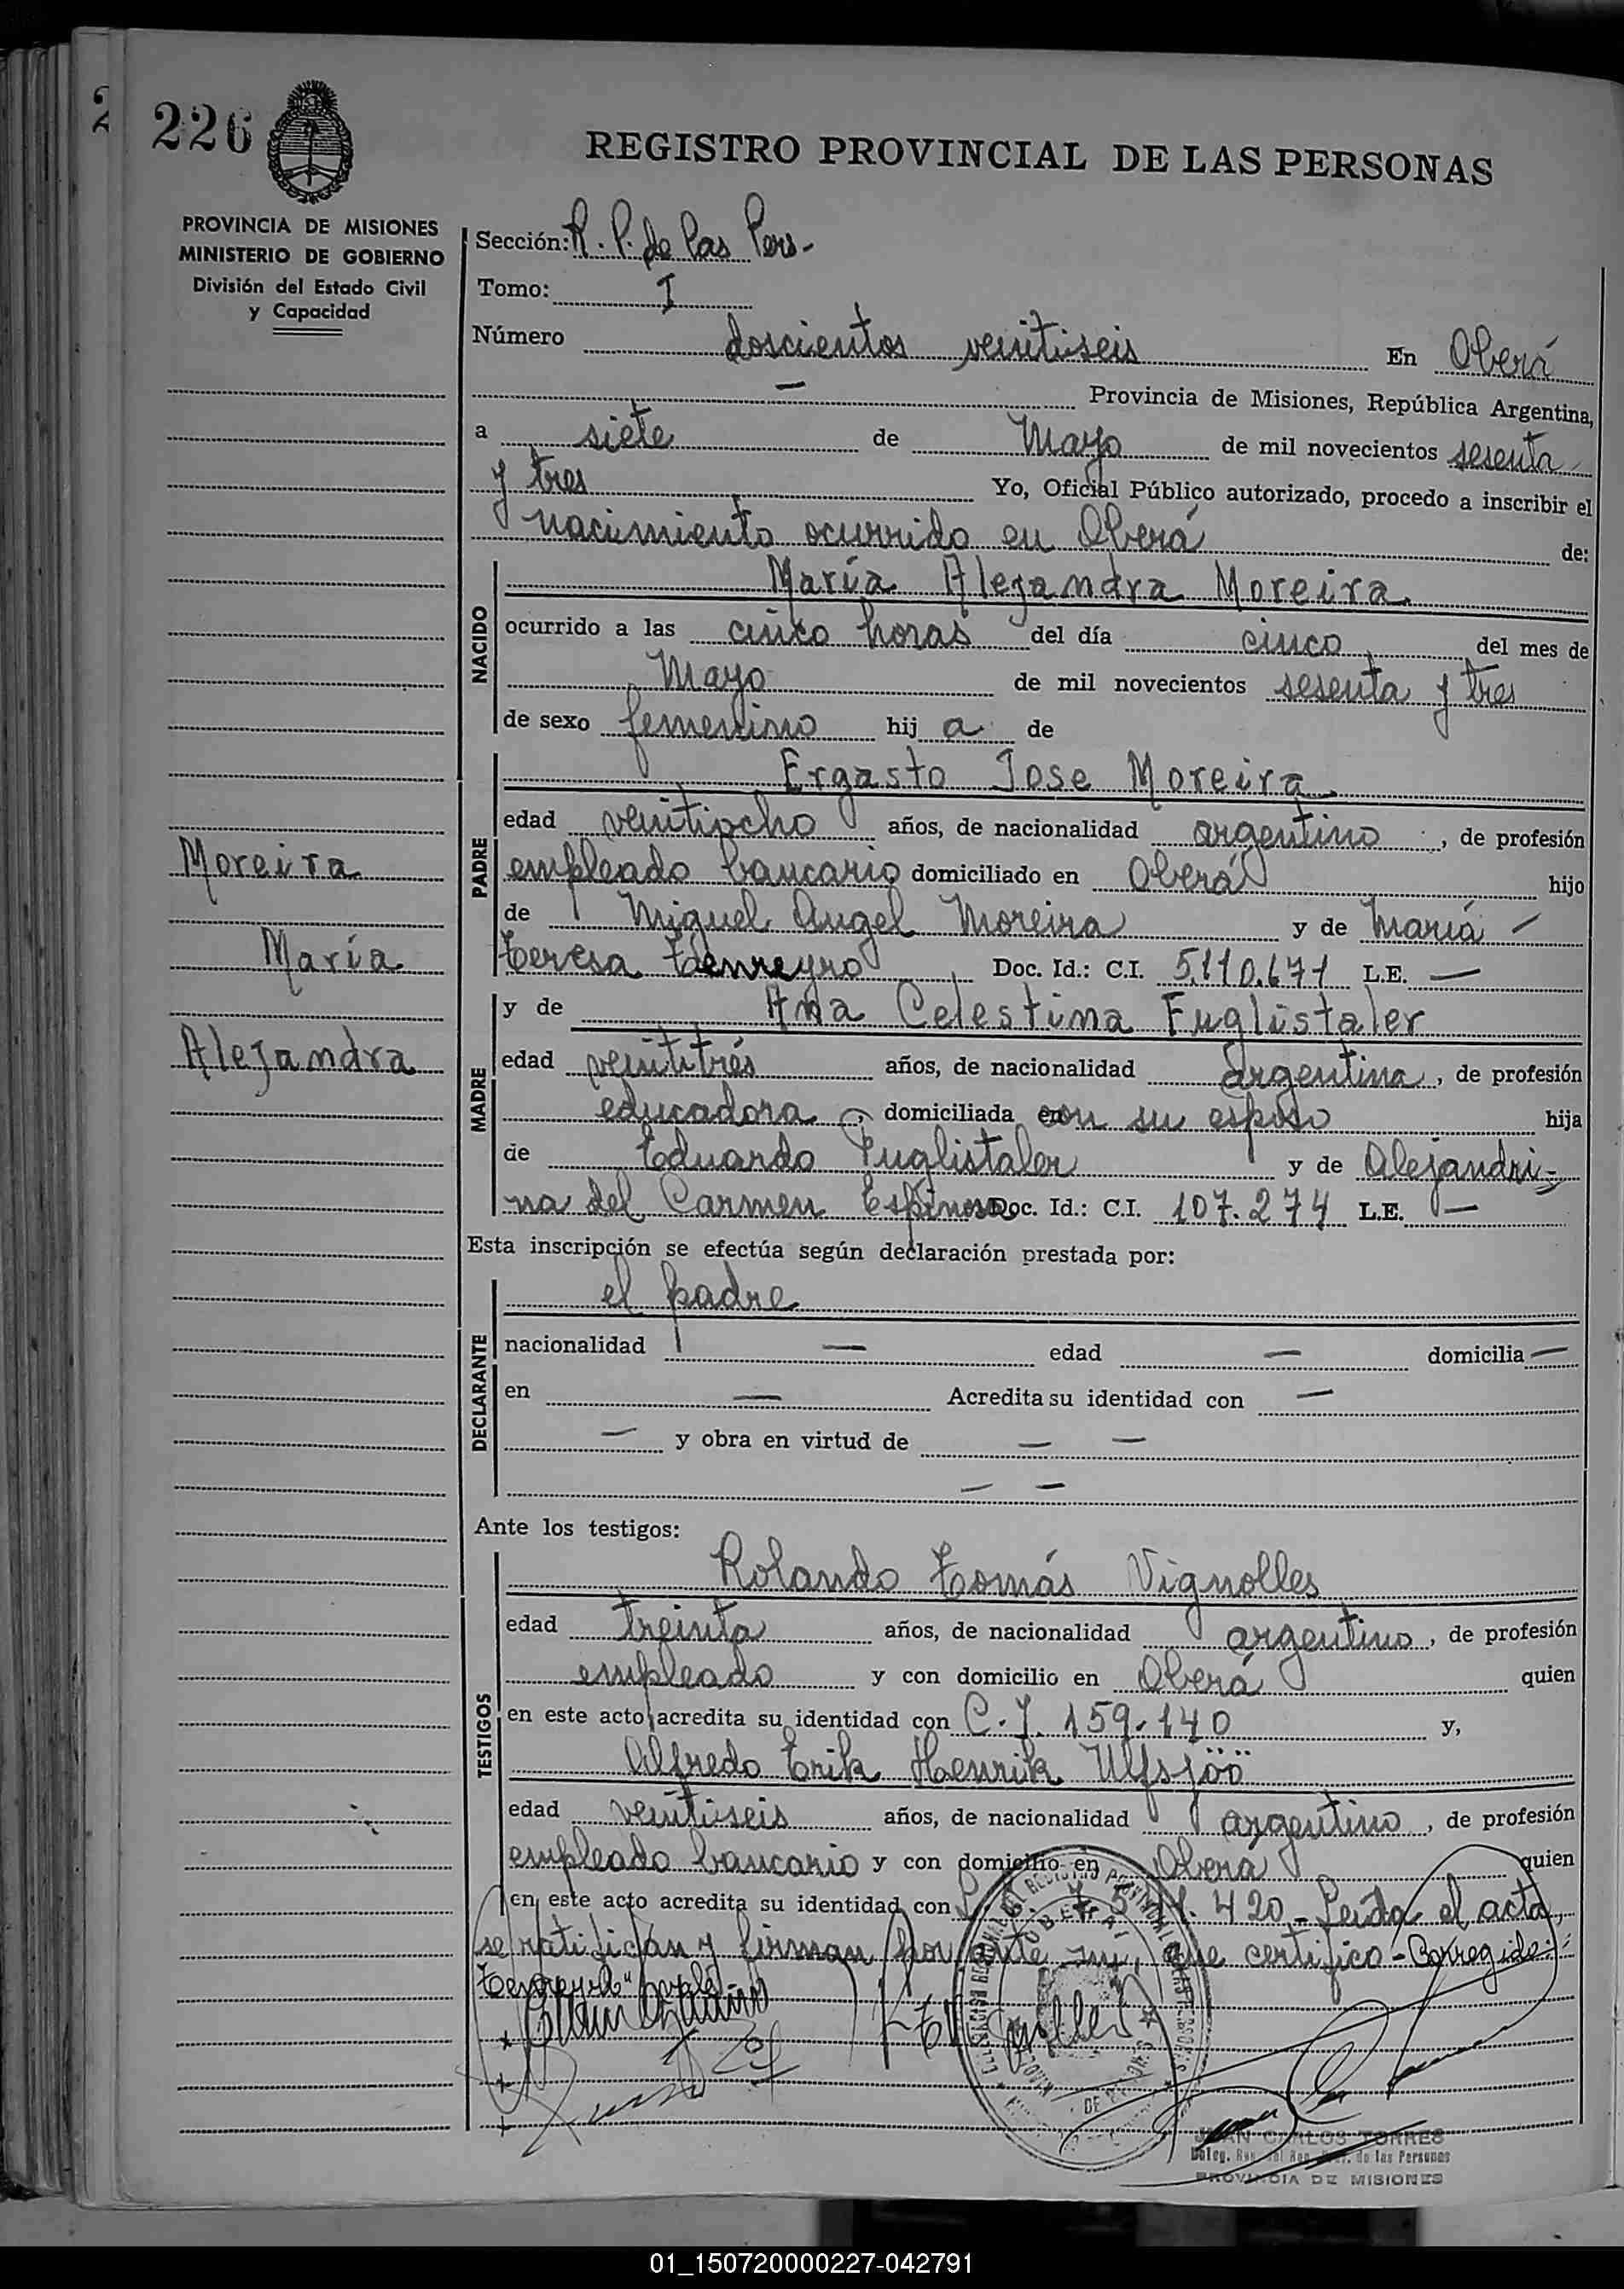 226
REGISTRO PROVINCIAL DE LAS PERSONAS
PROVINCIA DE MISIONES
MINISTERIO DE GOBIERNO
División del Estado Civil
y Capacidad
Sección: R. P. de las Pers.-
Tomo: I
Número doscientos veintiseis En Oberá
— Provincia de Misiones, República Argentina,
a siete de Mayo de mil novecientos sesenta
y tres Yo, Oficial Público autorizado, procedo a inscribir el
nacimiento ocurrido en Oberá de:
NACIDO
María Alejandra Moreira
ocurrido a las cinco horas del día cinco del mes de
Mayo de mil novecientos sesenta y tres
de sexo femenino hij a de
PADRE
Ergasto Jose Moreira
edad veintiocho años, de nacionalidad argentino, de profesión
empleado bancario domiciliado en Oberá hijo
de Miguel Angel Moreira y de María —
Teresa Tenreyro Doc. Id.: C.I. 5.110.671 L.E. —
Moreira
María
Alejandra
MADRE
y de Ana Celestina Fuglistaler
edad veintitrés años, de nacionalidad argentina, de profesión
educadora, domiciliada en con su esposo hija
de Eduardo Fuglistaler y de Alejandri-
na del Carmen Espinosa Doc. Id.: C.I. 107.274 L.E. —
Esta inscripción se efectúa según declaración prestada por:
DECLARANTE
el padre
nacionalidad — edad — domicilia —
en — Acredita su identidad con —
— y obra en virtud de — —
— —
Ante los testigos:
TESTIGOS
Rolando Tomás Vignolles
edad treinta años, de nacionalidad argentino, de profesión
empleado y con domicilio en Oberá quien
en este acto acredita su identidad con C.I. 159.140 y,
Alfredo Erik Henrik Ulfsjöö
edad veintiseis años, de nacionalidad argentino, de profesión
empleado bancario y con domicilio en Oberá quien
en este acto acredita su identidad con 420.- Leida el acta,
se ratifican y firman por ante mí, que certifico - Corregido:
"Tenreyro" vale.-
OBERA
JUAN CARLOS TORRES
de las Personas
PROVINCIA DE MISIONES
01_150720000227-042791